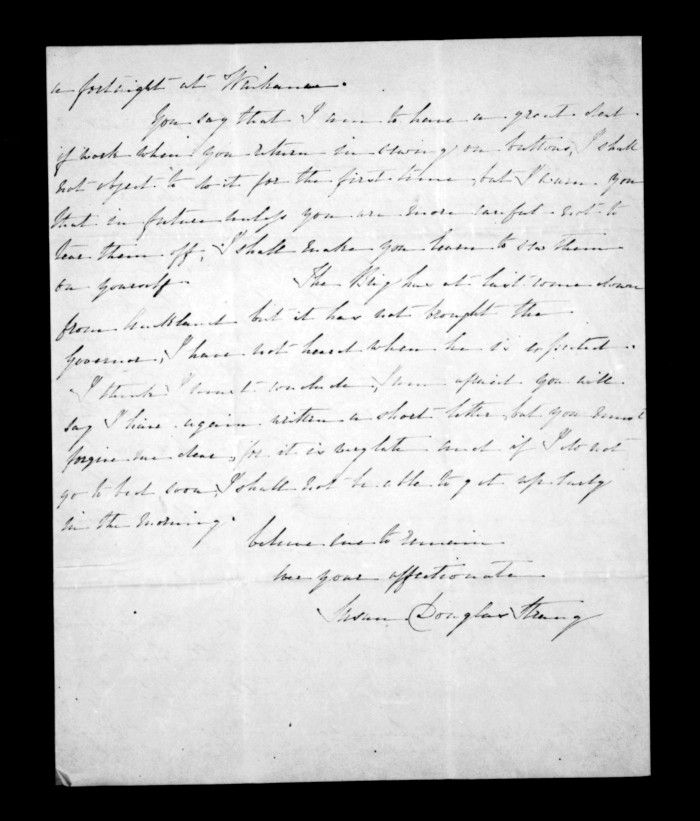 a fortnight at Waikanae.
You say that I am to have a great deal
of work when you return in sewing on buttons, I shall
not object to do it for the first time, but I warn you
that in future unless you are more careful not to
tear them off, I shall make you learn to sew them
on yourself. The Brig has at last come down
from Auckland but it has not brought the
Governor, I have not heard when he is expected.
I think I must conclude, I am afraid you will
say I have again written a short letter, but you must
forgive me dear, for it is very late and if I do not
go to bed soon, I shall not be able to get up early
in the morning.
believe me to remain
ever your affectionate
Susan Douglas Strang